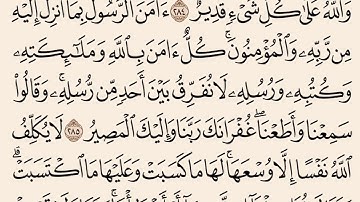 وَٱللَّهُ عَلَىٰ كُلِّ شَىْءٍ قَدِيرٌ ٢٨٤ ءَامَنَ ٱلرَّسُولُ بِمَآ أُنزِلَ إِلَيْهِ
مِن رَّبِّهِۦ وَٱلْمُؤْمِنُونَ ۚ كُلٌّ ءَامَنَ بِٱللَّهِ وَمَلَـٰٓئِكَتِهِۦ
وَكُتُبِهِۦ وَرُسُلِهِۦ لَا نُفَرِّقُ بَيْنَ أَحَدٍ مِّن رُّسُلِهِۦ ۚ وَقَالُوا۟
سَمِعْنَا وَأَطَعْنَا ۖ غُفْرَانَكَ رَبَّنَا وَإِلَيْكَ ٱلْمَصِيرُ ٢٨٥ لَا يُكَلِّفُ
ٱللَّهُ نَفْسًا إِلَّا وُسْعَهَا ۚ لَهَا مَا كَسَبَتْ وَعَلَيْهَا مَا ٱكْتَسَبَتْ ۗ